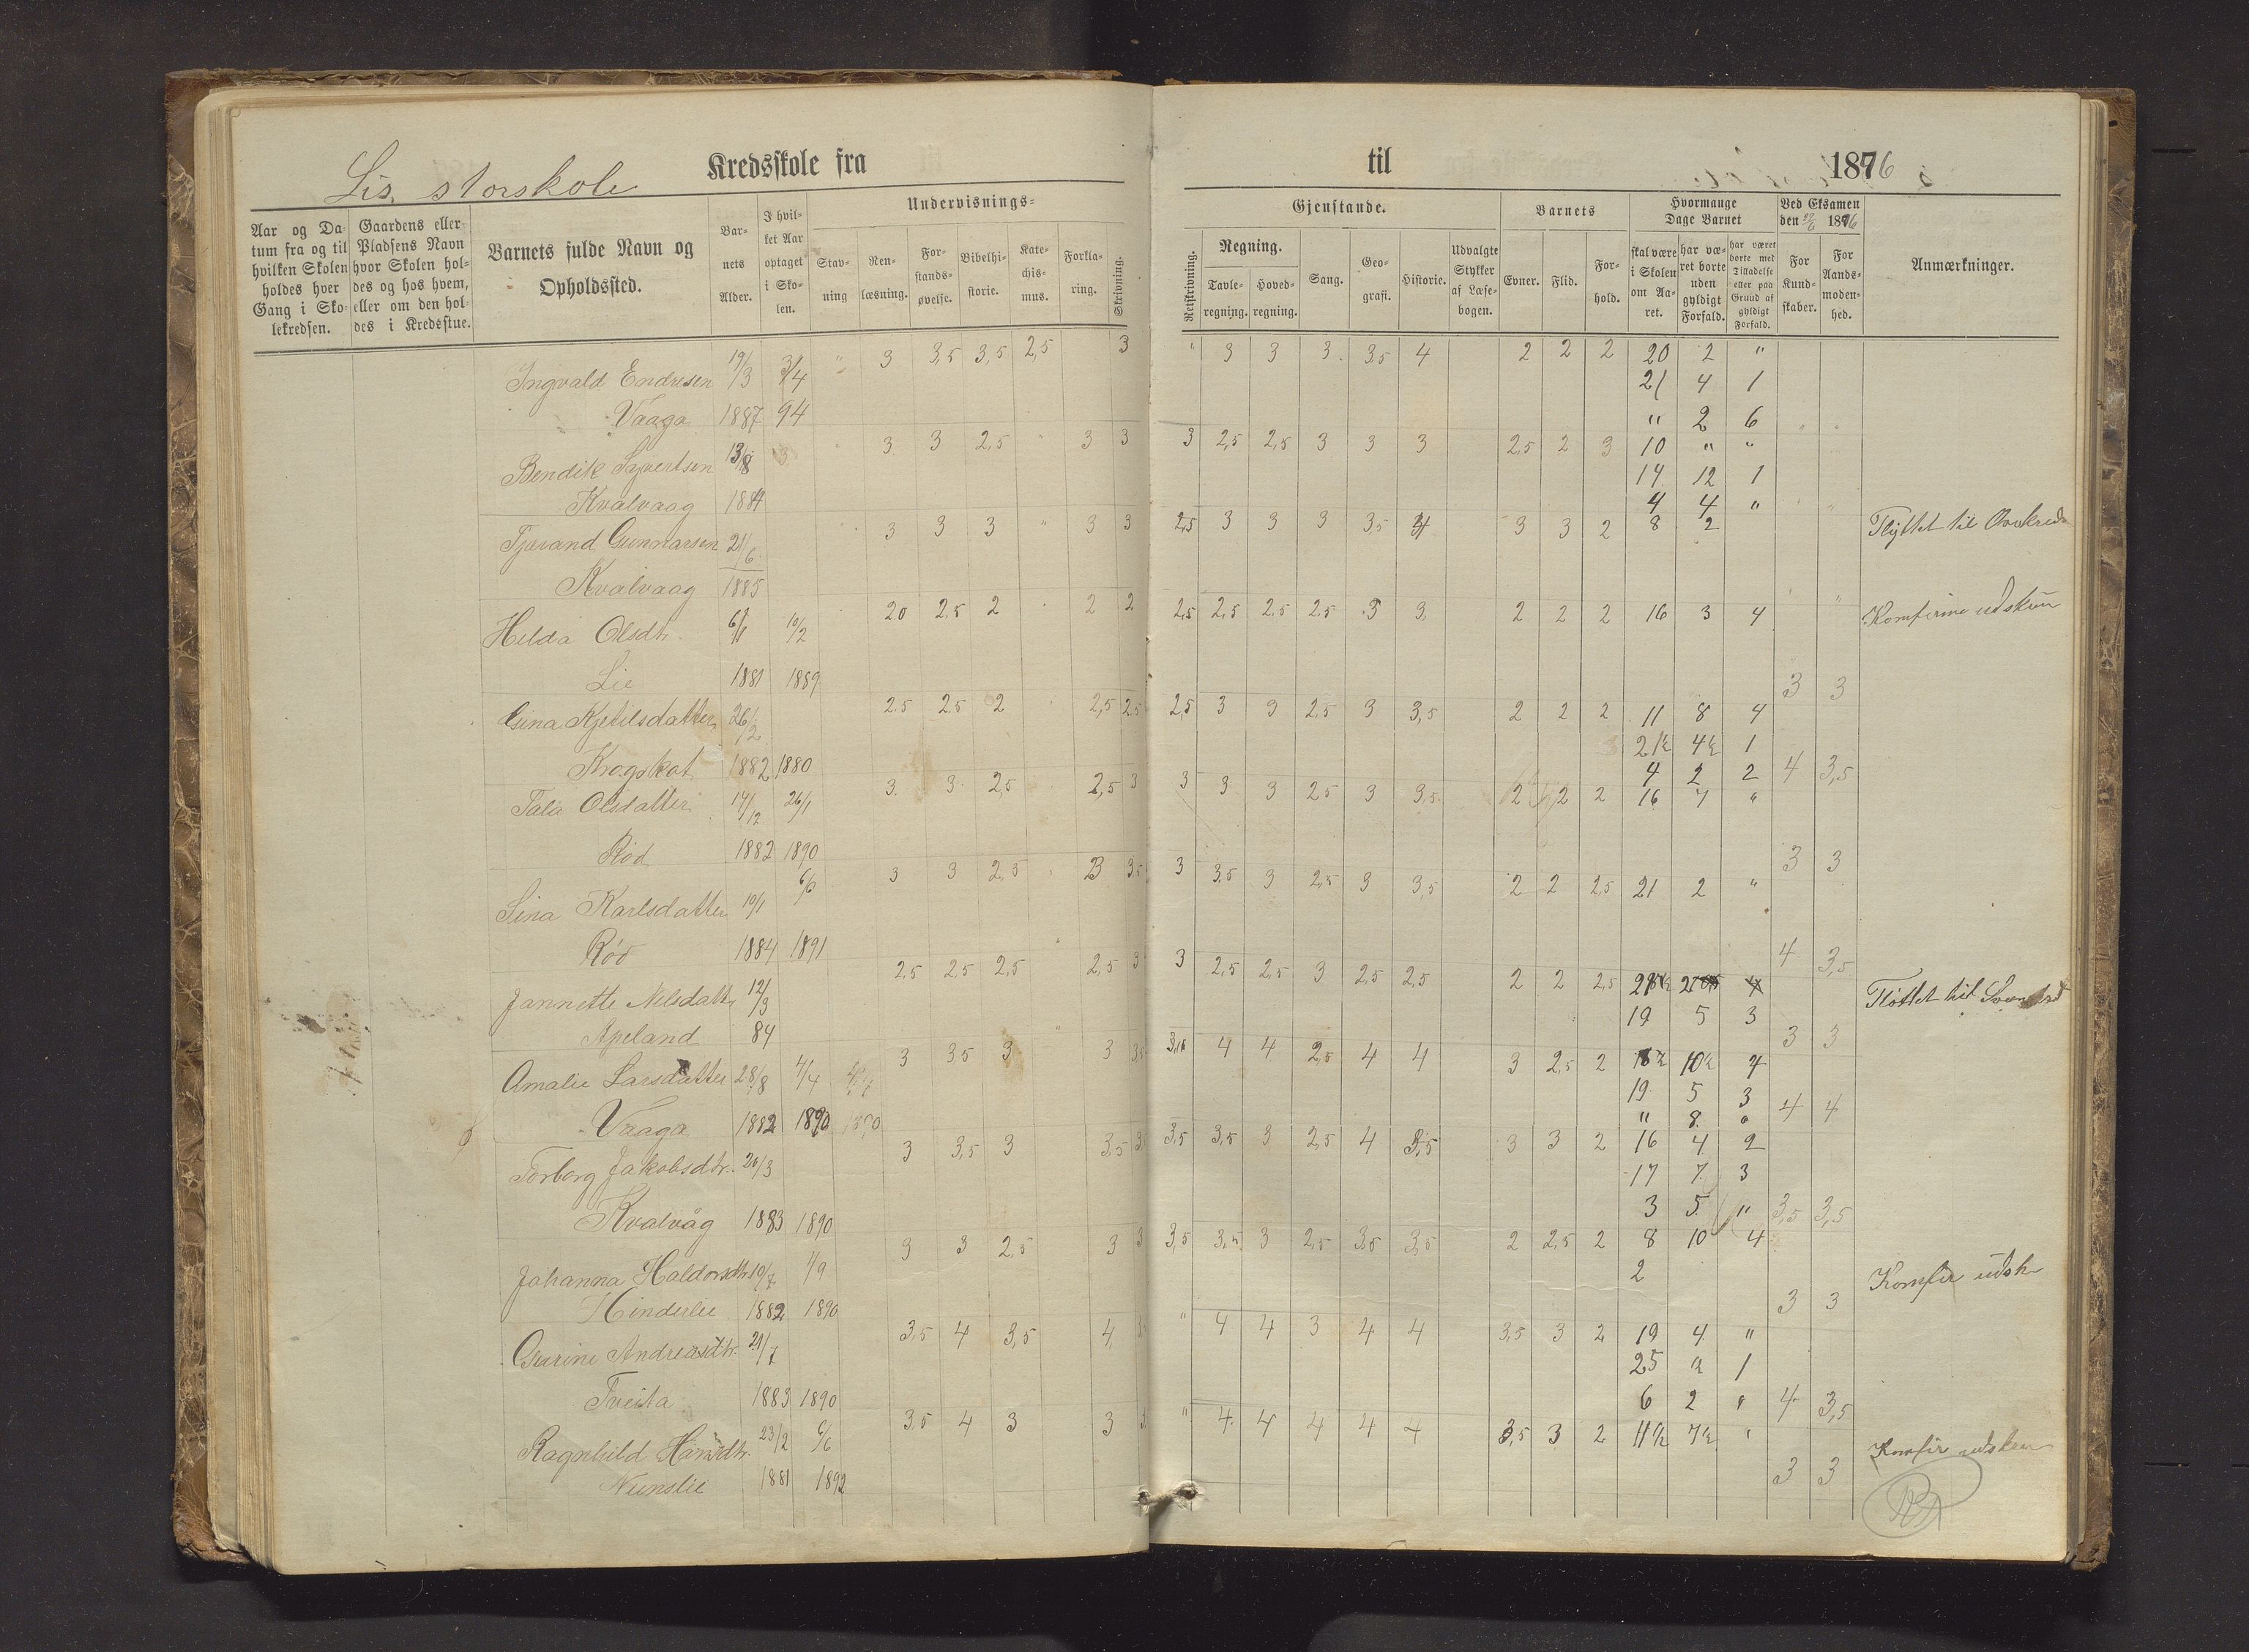 Lis storskole Kredsskole fra til 1876
Aar og Da-
tum fra og til
hvilken Skolen
holdes hver
Gang i Sko-
lekredsen.
Gaardens eller
Pladsens Navn
hvor Skolen hol-
des og hos hvem,
eller om den hol-
des i Kredsstue.
Barnets fulde Navn og
Opholdssted.
Bar-
nets
Alder.
I hvil-
ket Aar
optaget
i Sko-
len.
Undervisnings-
Stav-
ning
Ren-
læsning.
For-
stands-
øvelse.
Bibelhi-
storie.
Kate-
chis-
mus.
Forkla-
ring.
Skrivning.
Gjenstande.
Retskrivning.
Regning.
Tavle-
regning.
Hoved-
regning.
Sang.
Geo-
grafi.
Historie.
Udvalgte
Stykker
af Læse-
bogen.
Barnets
Evner.
Flid.
For-
hold.
Hvormange
Dage Barnet
skal være
i Skolen
om Aa-
ret.
har væ-
ret borte
uden
gyldigt
Forfald.
har været
borte med
Tilladelse
eller paa
Grund af
gyldigt
Forfald.
Ved Eksamen
den 1896
For
Kund-
skaber.
For
Aands-
moden-
hed.
Anmærkninger.
Ingvald Endresen 19/3 3/4 " 3 3,5 3,5 2,5 3 " 3 3 3 3,5 4 2 2 2 20 2 "
21 4 1
Vaaga 1887 94 " 2 6
Bendik Syvertsen 13/8 3 3 2,5 3 3 3 2,5 2,5 3 3 3 2,5 2 3 10 " "
14 12 1
Kvalvaag 1884 4 4 "
Tjærand Gunnarsen 21/6 3 3 3 " 3 3 2,5 3 3 3 3,5 4 3 3 2 8 2 Flyttet til
Kvalvaag 1885
Helda Olsdtr. 10/2 20 2.5 2 2 2 2,5 2,5 2,5 2,5 3 3 2 2 2 16 3 4
Lie 1881 1889 3 3
Gina Kjetilsdatter 26/2 2.5 2.5 2 2,5 2.5 2,5 3 3 2,5 3 3,5 2 2 2 11 8 4
21½ 4½ 1
Krogskot 1882 1880 4 2 2 4 3,5
Tala Olsdatter 17/12 26/1 3 3 2,5 2,5 3 3 3 3 2,5 3 3,5 2 2 2 16 4 "
Rød 1882 1890 3 3
Sina Karlsdatter 10/1 6/6 3 3 2,5 3 3,5 3 3,5 3 2,5 3 3,5 2 2 2,5 21 2 "
Rød 1884 1891 4 3,5
Jannette Nilsdattr 12/3 2,5 2,5 2,5 2,5 3 3 2,5 2,5 3 2,5 2,5 2 2 2,5 Fløttet til
19 5 3
Apeland 84 3 3
Amalie Larsdatter 28/8 4/4 3 3,5 3 3 3,5 4 4 2,5 4 4 3 2,5 2 18½ 10½ 4
19 5 3
Vaaga 1882 1890 1890 " 8 " 4 4
Torborg Jakobsdtr. 20/3 3 3,5 3 3,5 3,5 3,5 3 2,5 4 3,5 3 3 2 16 4 2
17 7 3
Kvalvåg 1883 1890 3 5 " 3,5 3,5
Johanna Haldorsdtr 10/7 1/9 3 3 2,5 3 3 3,5 3,5 3 2,5 3,5 3,5 2 2,5 2 8 10 4
2 Komfir udsk
Hinderlie 1882 1890 3 3
Garine Andreasdtr. 21/7 3,5 4 3,5 4 " 4 4 3 4 4 3,5 3 2 19 4 "
25 2 1
Tveita 1883 1890 6 2 " 4 3,5
Ragnhild Hansdtr. 23/2 6/6 3.5 4 3 3 " 4 4 4 4 4 3,5 3 2 11½ 7½ "
Nunslie 1881 1892 3 3